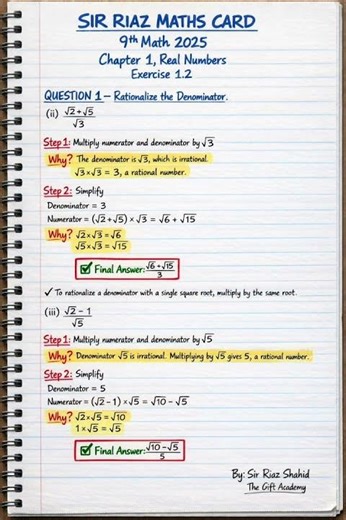 SIR RIAZ MATHS CARD
9th Math 2025
Chapter 1, Real Numbers
Exercise 1.2
QUESTION 1 – Rationalize the Denominator.
(ii) (√2+√5)/√3
Step 1: Multiply numerator and denominator by √3
Why? The denominator is √3, which is irrational.
√3×√3 = 3, a rational number.
Step 2: Simplify
Denominator = 3
Numerator = (√2+√5) × √3 = √6 + √15
Why? √2×√3 = √6
√5×√3 = √15
✓ Final Answer: (√6+√15)/3
✓ To rationalize a denominator with a single square root, multiply by the same root.
(iii) (√2 – 1)/√5
Step 1: Multiply numerator and denominator by √5
Why? Denominator √5 is irrational. Multiplying by √5 gives 5, a rational number.
Step 2: Simplify
Denominator = 5
Numerator = (√2 – 1) × √5 = √10 – √5
Why? √2×√5 = √10
1×√5 = √5
✓ Final Answer: (√10 – √5)/5
By: Sir Riaz Shahid
The Gift Academy